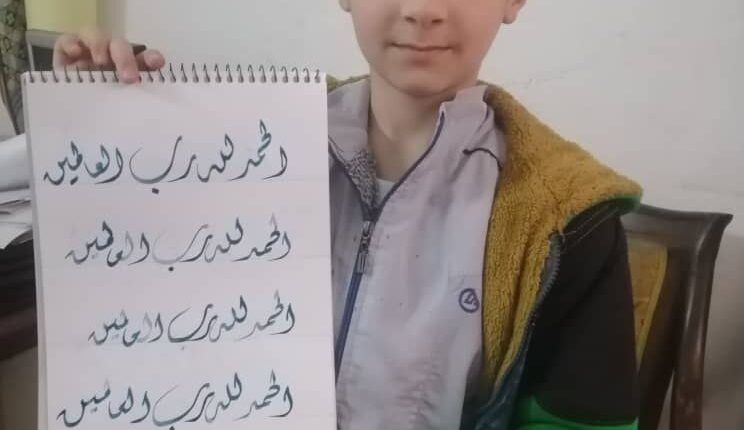 الحمد لله رب العالمين
الحمد لله رب العالمين
الحمد لله رب العالمين
الحمد لله رب العالمين